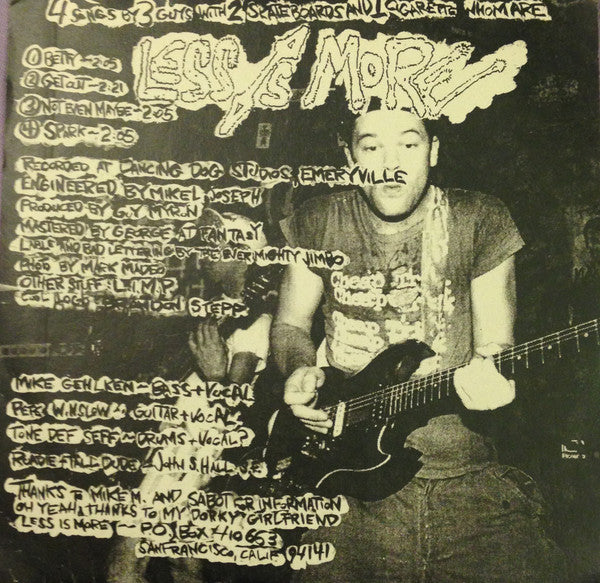 4 SONGS BY 3 GUYS WITH 2 SKATEBOARDS AND 1 CIGARETTE WHOM ARE
LESS IS MORE
① BETTY ~ 2:05
② GET OUT ~ 2:21
③ NOT EVEN MAYBE ~ 2:05
④ SPARK ~ 2:05
RECORDED AT DANCING DOG STUDIOS, EMERYVILLE
ENGINEERED BY MIKEL JOSEPH
PRODUCED BY G.Y MYR.N
MASTERED BY GEORGE AT FANTASY
LABLE AND BAD LETTERING BY THE EVER MIGHTY JIMBO
PHOTO BY MARK MADEO
OTHER STUFF: L.I.M.P.
COOL LOGO ~ BRANDON STEPP
MIKE GEHLKEN ~ BASS + VOCAL
PERR WINSLOW ~ GUITAR + VOCAL
TONE DEF JEFF ~ DRUMS + VOCAL?
ROADIE + TALL DUDE ~ JOHN S. HALL
THANKS TO MIKE M. AND SABOT FOR INFORMATION
OH YEAH & THANKS TO MY DORKY GIRLFRIEND
LESS IS MORE? ~ PO BOX 410653
SANFRANCISCO, CALIF 94141